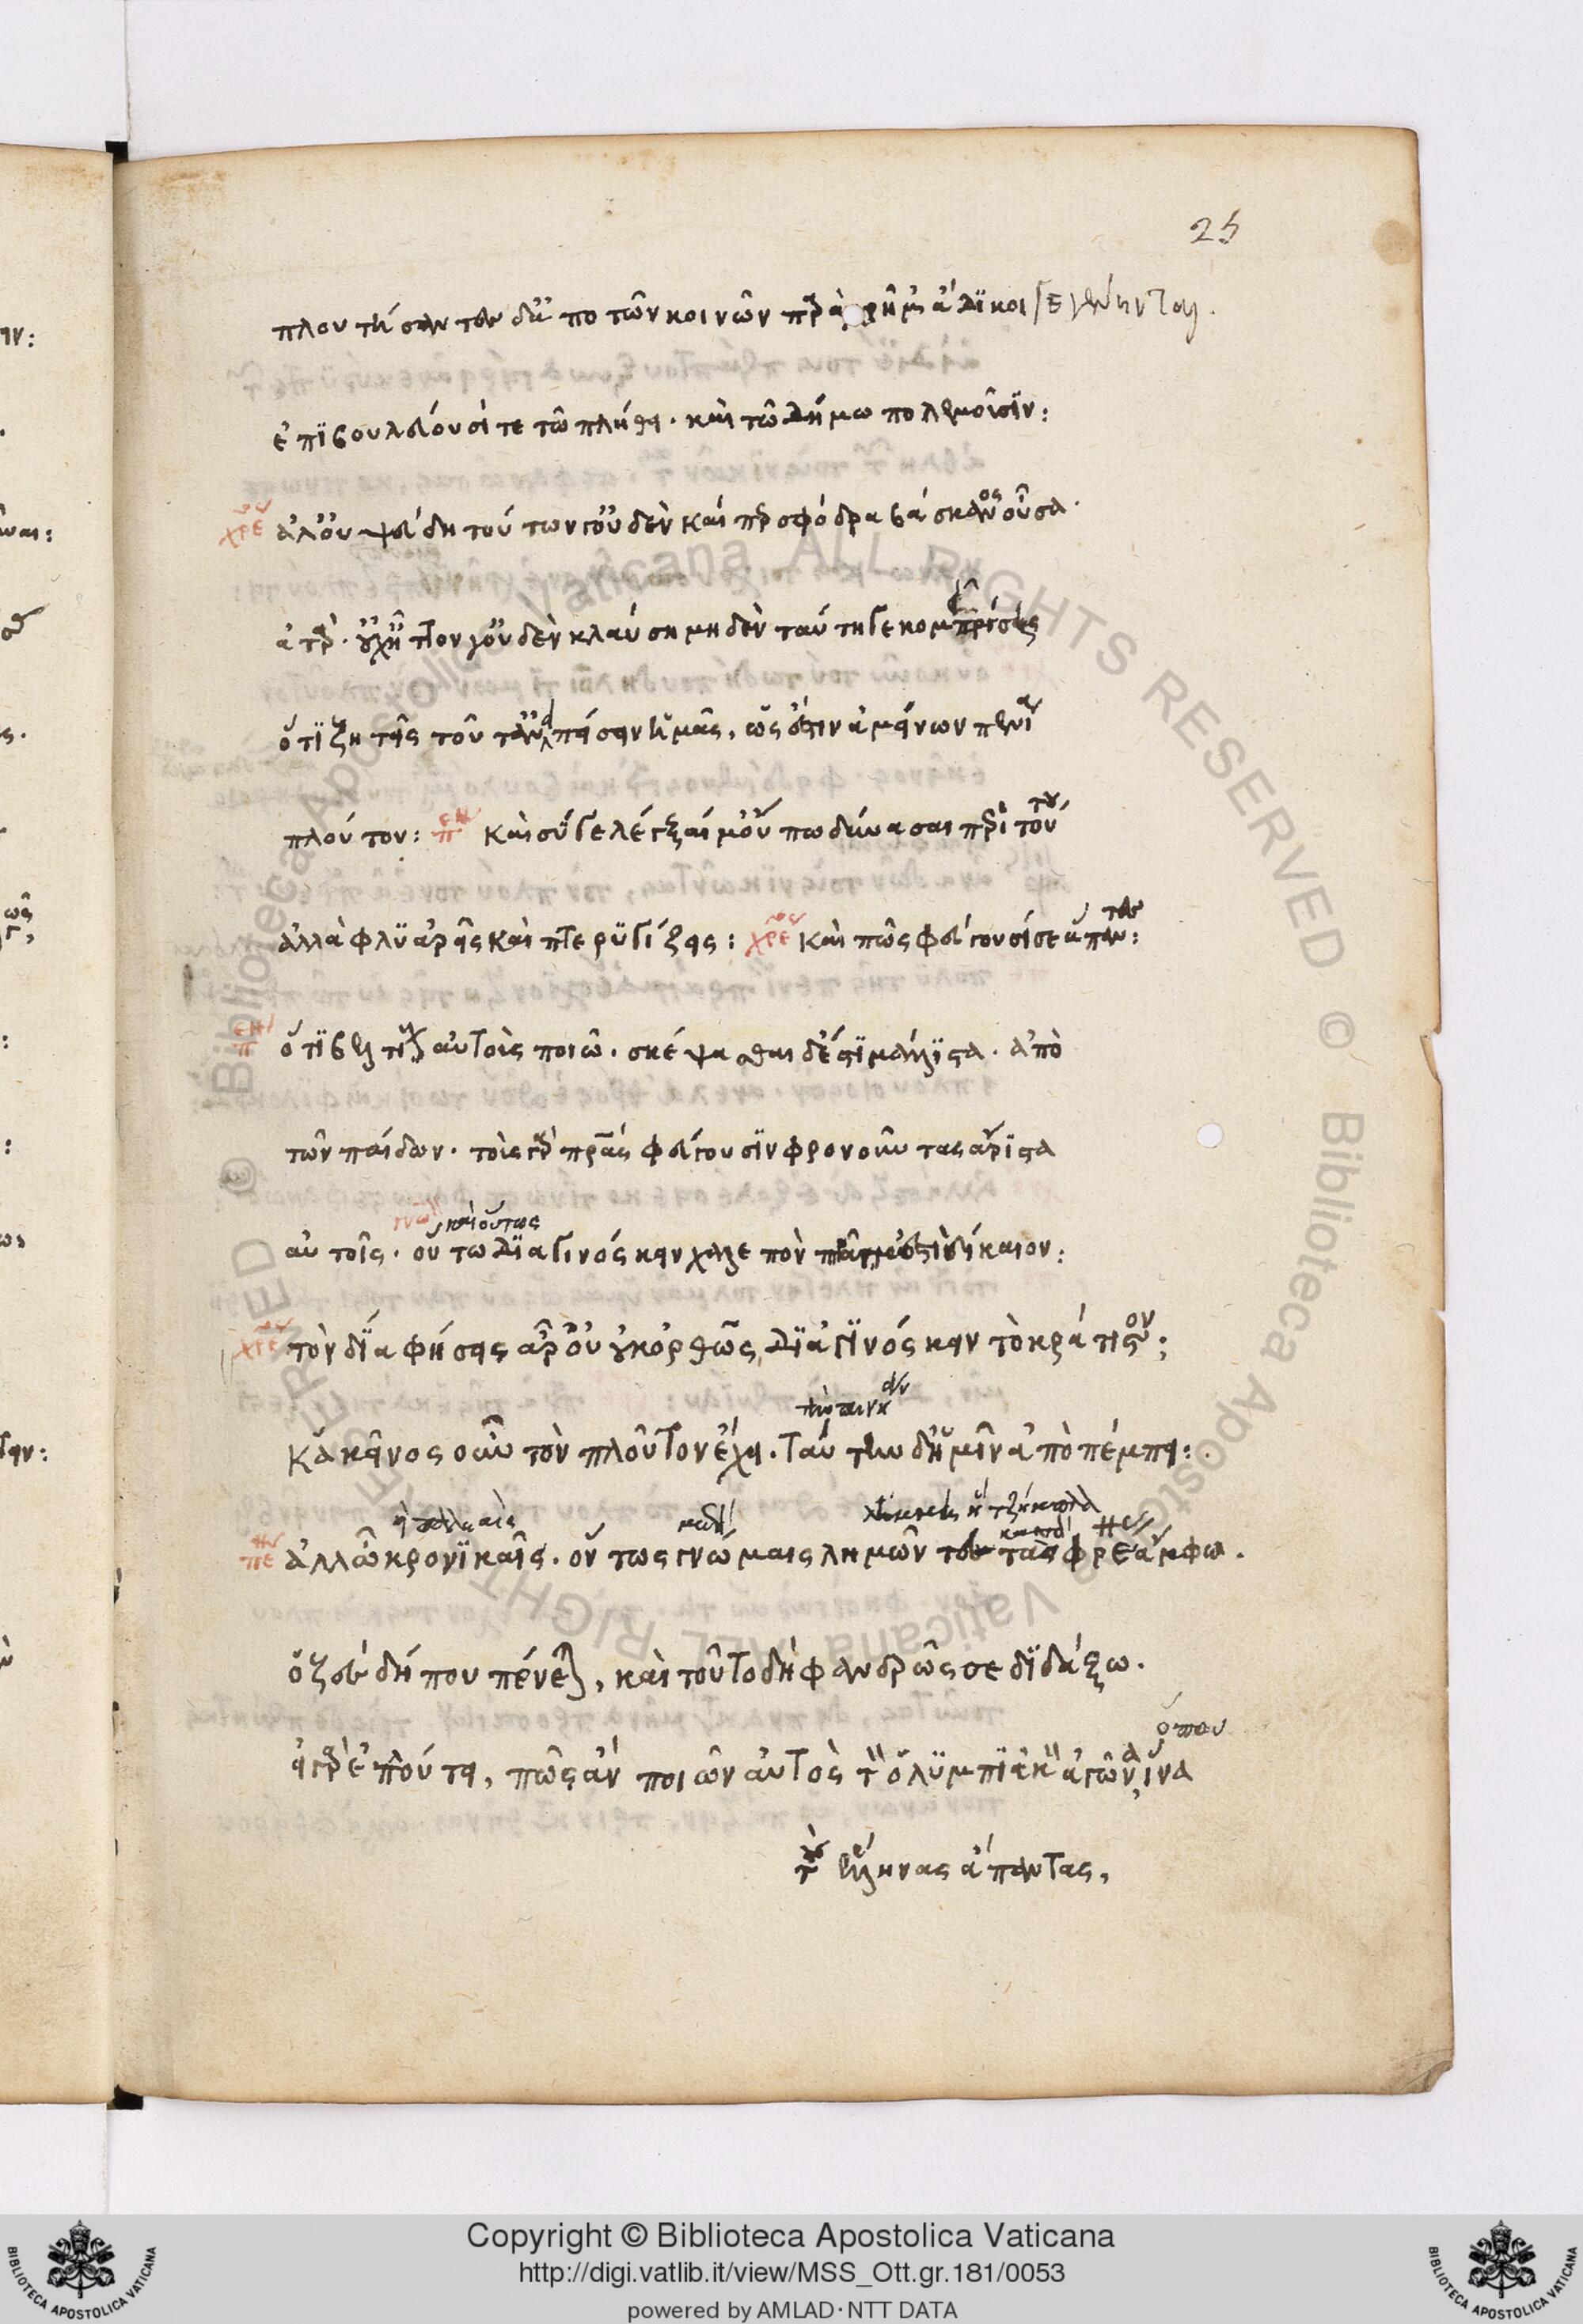 25
πλουτήσαντες δ' ἀπὸ τῶν κοινῶν παραχρῆμ' ἄδικοι γεγένηνται.
ἐπιβουλεύουσί τε τῶ πλήθει. καὶ τῶ δήμω πολεμοῦσιν:
χρε ἀλλ' οὐ ψεύδη τούτων γ' οὐδὲν καίπερ σφόδρα βάσκανος οὖσα.
ἀτὰρ οὐχ ἧττόν γ' οὐδὲν κλαύση μηδὲν ταύτη γε κομ
ὅτι ζητεῖς τοῦτ' ἀναπείσειν ἡμᾶς, ὡς ἔστιν ἀμείνων πενία
πλούτου: πεν καὶ σύ γ' ἐλέγξαί μ' οὔπω δύνασαι περὶ τούτου
ἀλλὰ φλυαρεῖς καὶ πτερυγίζεις: χρε καὶ πῶς φεύγουσί σε ἅπαντες:
πεν ὅτι βελτίους αὐτοὺς ποιῶ. σκέψασθαι δ' ἔστι μάλιστα. ἀπὸ
τῶν παίδων. τοὺς γὰρ πατέρας φεύγουσιν φρονοῦντας ἄριστα
καὶ οὕτως
αὐτοῖς. οὕτω διαγινώσκειν χαλεπὸν πρᾶγμ' ἐστὶ δίκαιον:
χρε τὸν δία φήσεις ἆρ' οὐκ ὀρθῶς διαγινώσκειν τὸ κράτιστον;
κἀκεῖνος οὖν τὸν πλοῦτον ἔχει. ταύτην δ' ἡμῖν ἀποπέμπει:
πεν ἀλλ' ὦ κρονικαῖς. ὄντως γνώμαις λημῶντες τὰς φρένας ἄμφω.
ὁ ζεὺς δήπου πένεται, καὶ τοῦτο δὴ φανερῶς σε διδάξω.
ὅπου
εἰ γὰρ ἐπλούτει, πῶς ἂν ποιῶν αὐτὸς τὸν ὀλυμπιακὸν ἀγῶνα, ἵνα
τοὺς ἕλληνας ἅπαντας,
Copyright © Biblioteca Apostolica Vaticana
http://digi.vatlib.it/view/MSS_Ott.gr.181/0053
powered by AMLAD·NTT DATA